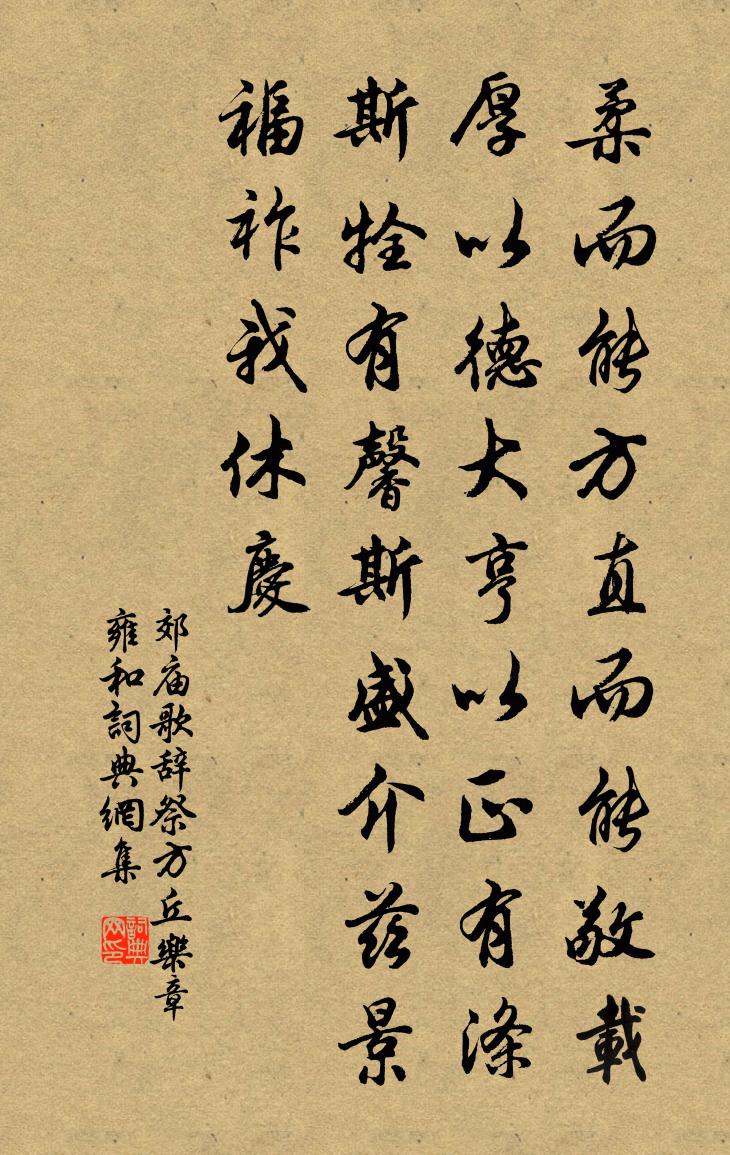 柔而能方直而能敬載
厚以德大亨以正有滌
斯牷有馨斯盛介茲景
福祚我休慶
郊庙歌辞祭方丘樂章
雍和詞典網集
詞典网印